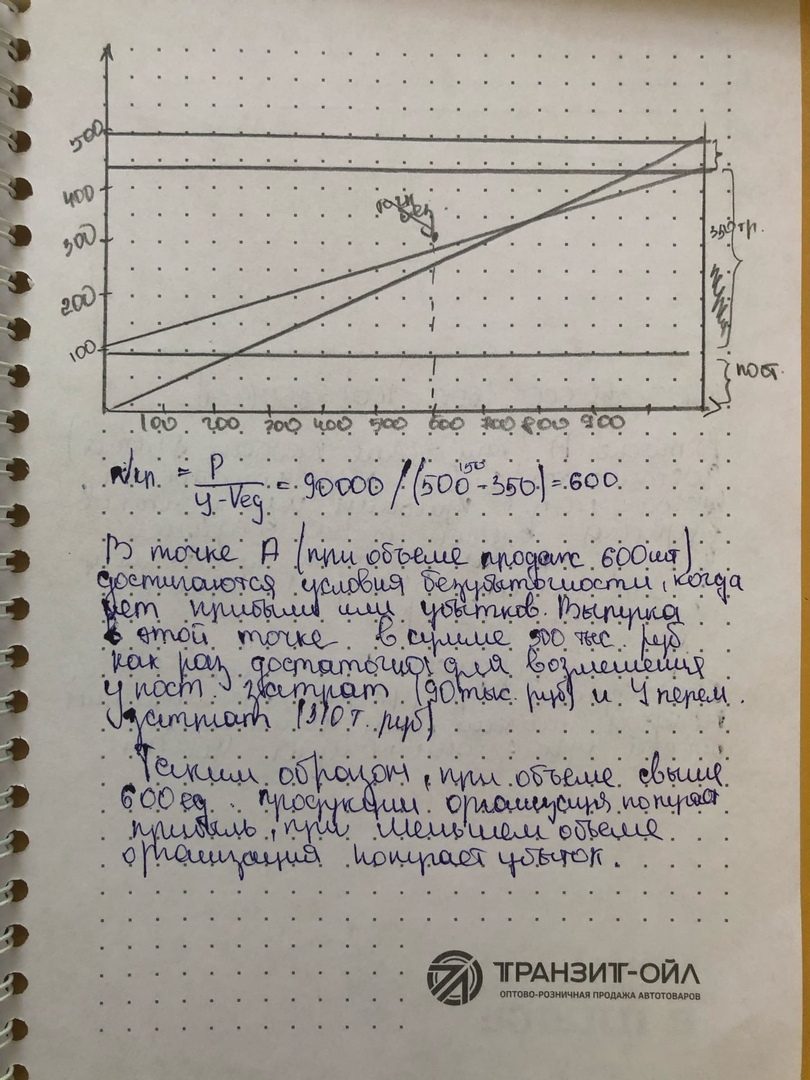 500
400
300
200
100
точка без
350 тр.
пост.
100 200 300 400 500 600 700 800 900
Nкр. = P / (Ц - Vед) = 90000 / (500 - 350) = 600
150
В точке А (при объеме продаж 600шт)
достигаются условия безубыточности, когда
нет прибыли или убытков. Выручка
в этой точке в сумме 300 тыс. руб
как раз достаточна для возмещения
пост. затрат (90 тыс. руб) и перем.
затрат (210 т. руб)
Таким образом, при объеме свыше
600 ед. продукции организация
прибыль, при меньшем объеме
организация убыток.
ТРАНЗИТ-ОЙЛ
ОПТОВО-РОЗНИЧНАЯ ПРОДАЖА АВТОТОВАРОВ